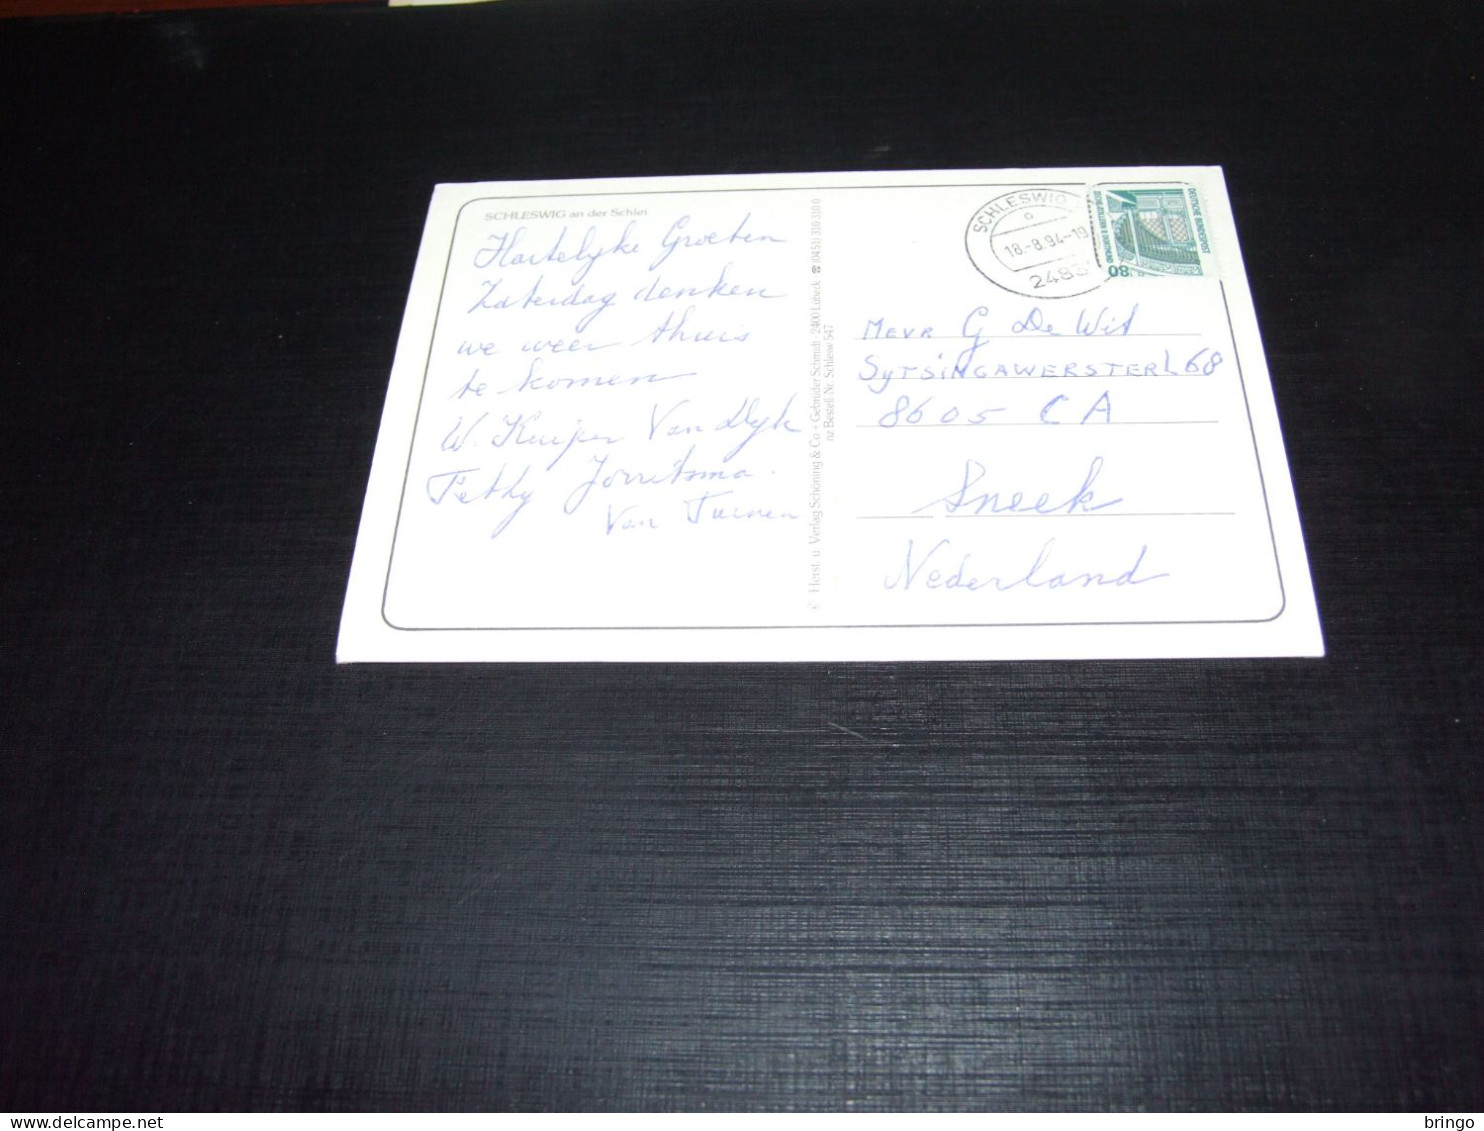 SCHLESWIG an der Schlei
Hartelyke Groeten
Zaterdag denken
we weer thuis
te komen
W. Kuiper Van Dyk
Tetty Jorritsma.
Van Tuinen
© Herst. u. Verlag Schöning & Co + Gebrüder Schmidt · 2400 Lübeck ☎ (0451) 310 310 0
nz Bestell-Nr. Schlesw 547
SCHLESWIG 1
a
18.-8.94-19
DEUTSCHE BUNDESPOST
80
MEVR G De Wit
SYTSINGAWERSTERL 68
8605 CA
Sneek
Nederland
bringo